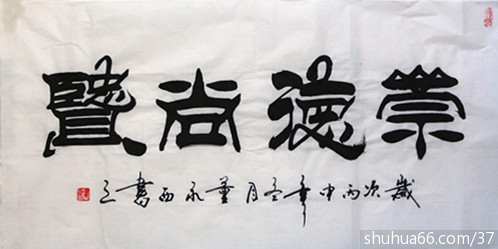 崇德尚賢
歲次丙申年冬月董永西書之
shuhua66.com/37